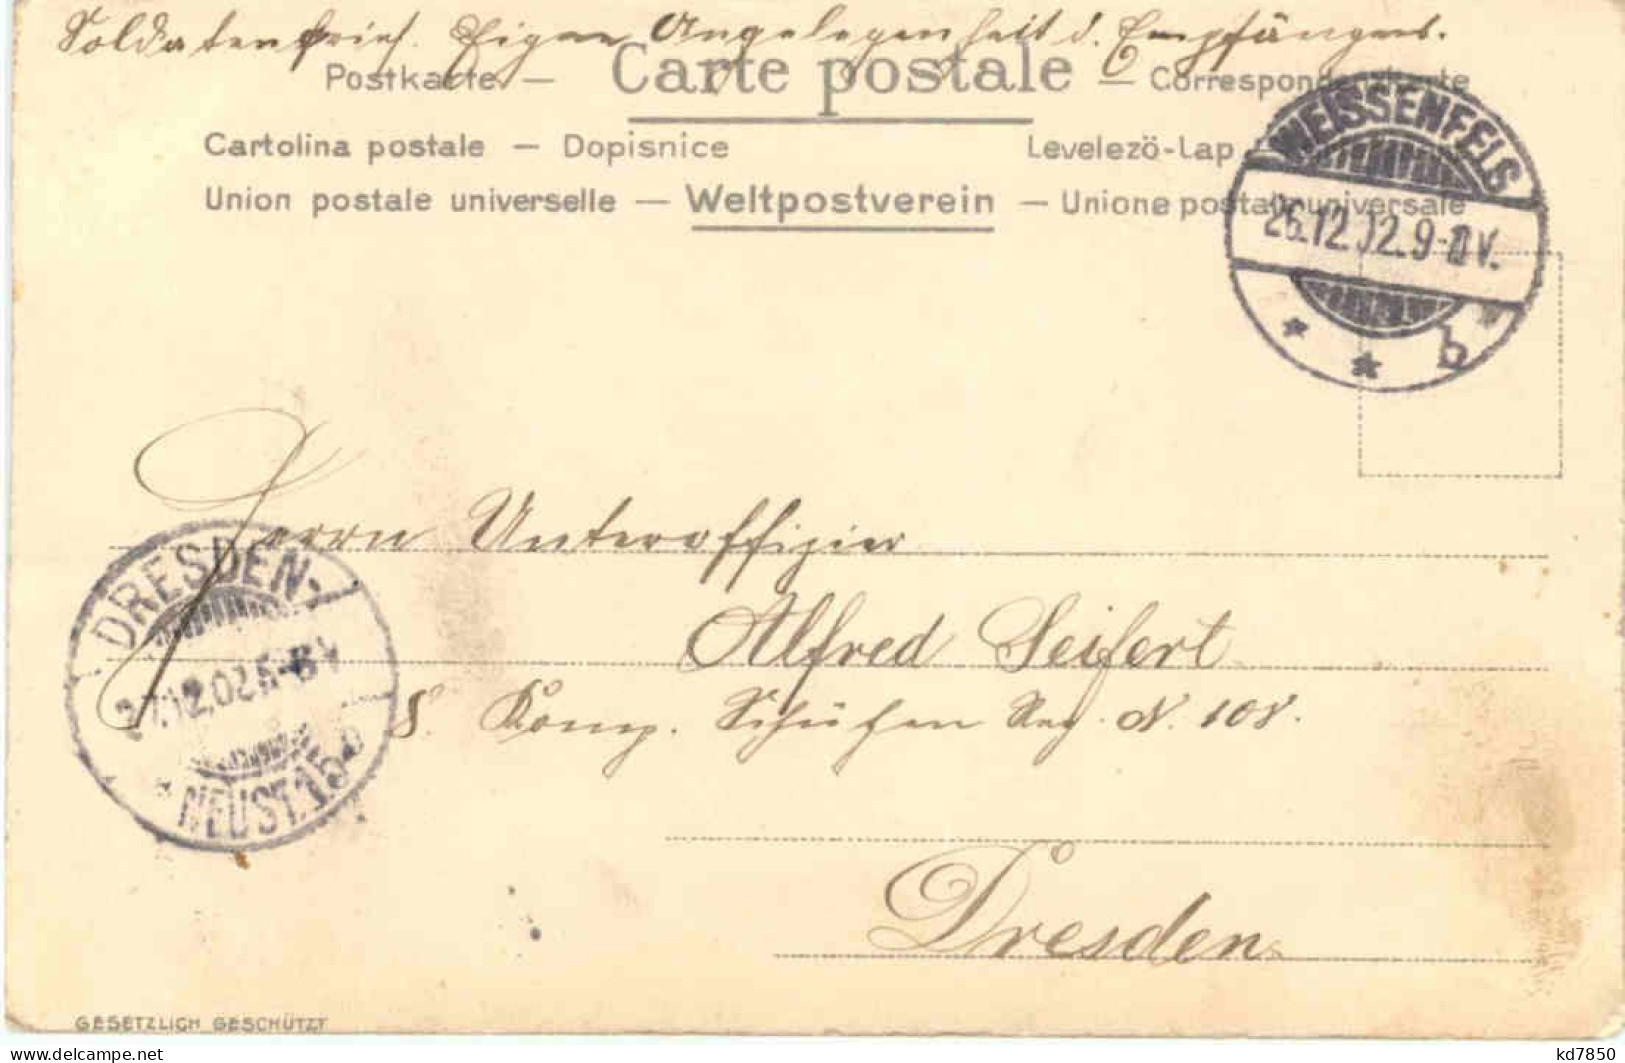 Soldatenbrief. Eigene Angelegenheit d. Empfängers.
Postkarte — Carte postale — Correspondenzkarte
Cartolina postale — Dopisnice Levelezö-Lap
Union postale universelle — Weltpostverein — Unione postale universale
WEISSENFELS
26.12.02.9-10V.
* * b
Herrn Unteroffizier
DRESDEN-
Alfred Seifert
.12.02.5-6V
8. Komp. Schützen Reg. N. 108.
NEUST. 15
Dresden
GESETZLICH GESCHÜTZT
kd7850